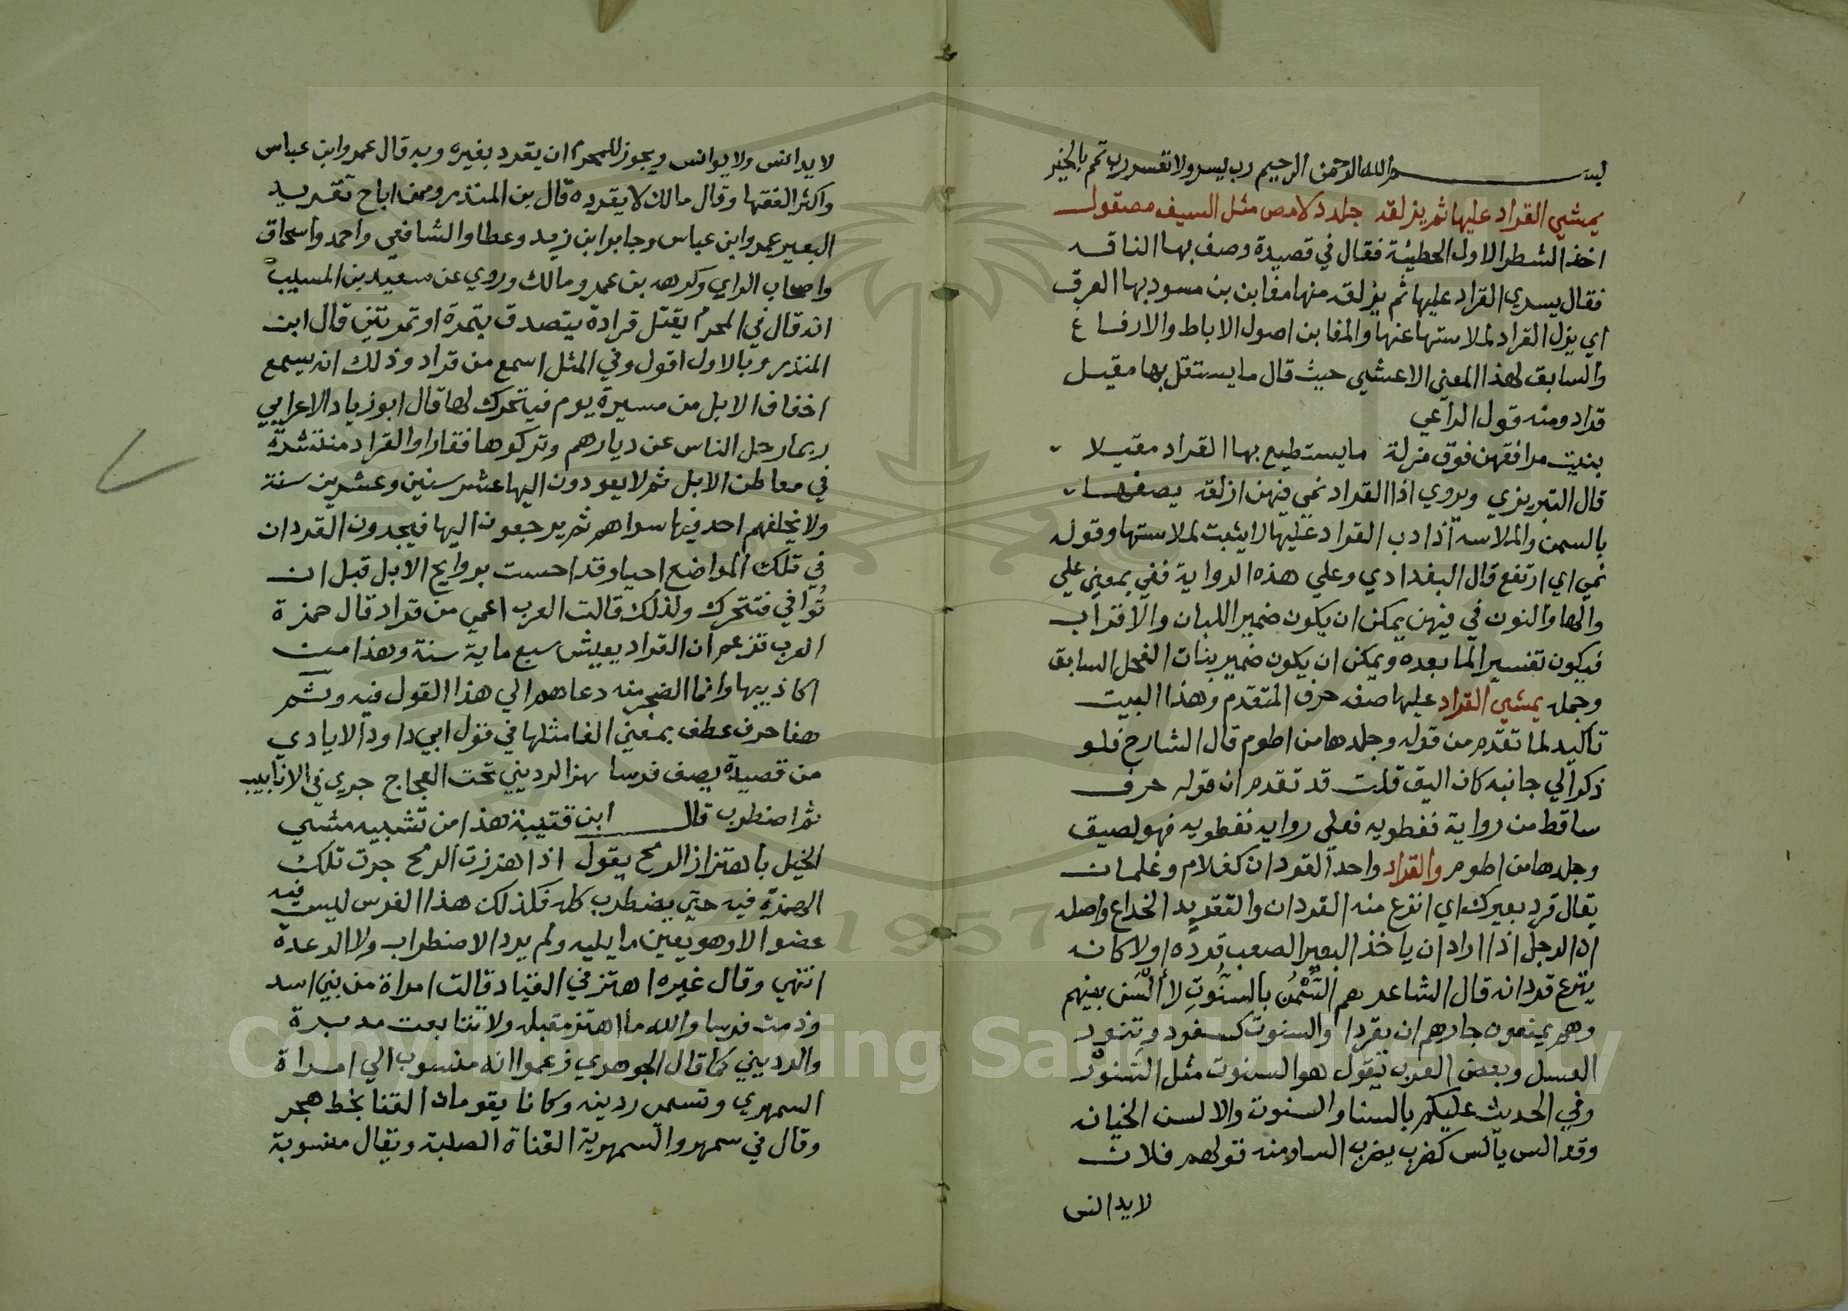 بسم الله الرحمن الرحيم رب يسر ولا تعسر رب تمم بالخير
يمشي القراد عليها ثم يزلقه جلد دلامص مثل السيف مصقول
اخذ الشطر الاول الحطيئة فقال في قصيدة وصف بها الناقه
فقال يسري القراد عليها ثم يزلقه منها مغابن بن مسود بها العرق
اي يزل القراد لملاستها عنها والمغابن اصول الاباط والارفاغ
والسابق لهذا المعني الاعشي حيث قال ما يستقل بها مقيل
قراد ومنه قول الراعي
بنيت مرافقهن فوق مزلة ما يستطيع بها القراد مقيلا
قال التبريزي ويروي اذا القراد نمي فيهن ازلقه يصفها
بالسمن والملاسه اذا دب القراد عليها لا يثبت لملاستها وقوله
نمي اي ارتفع قال البغدادي وعلي هذه الرواية ففي بمعني علي
والها والنون في فيهن يمكن ان يكون ضمير اللبان والاقراب
فيكون تفسيرا لما بعده ويمكن ان يكون ضمير بنات الفحل السابق
وجمله يمشي القراد عليها صفه حرف المتقدم وهذا البيت
تاكيد لما تقدم من قوله وجلدها من اطوم قال الشارح فلو
ذكر الي جانبه كان اليق قلت قد تقدم ان قوله حرف
ساقط من رواية نفطويه فعلي روايه نفطويه فهو لصيق
وجلدها من اطوم والقراد واحد القردان كغلام وغلمان
يقال قرد بعيرك اي انزع منه القردان والتقريد الخداع واصله
ان الرجل اذا اراد ان ياخذ البعير الصعب قرده اولا كانه
ينزع قردانه قال الشاعر هم السَّمْنُ بالسنوت لا ألسَ بينهم
وهم يمنعون جارهم ان يقردا والسنوت كسفود وتنور
العسل وبعض العرب تقول هو السنوت مثل السنور
وفي الحديث عليكم بالسنا والسنوت والالس الخيانه
وقد الس يألس كضرب يضرب السا ومنه قولهم فلان
لا يدالس
لا يدالس ولا يوالس ويجوز للمحرم ان يقرد بغيره وبه قال عمر وابن عباس
واكثر الفقها وقال مالك لا يقرده قال بن المنذر وممن اباح تقريد
البعير عمر وابن عباس وجابر ابن زيد وعطا والشافعي واحمد واسحاق
واصحاب الراي وكرهه بن عمر ومالك وروي عن سعيد بن المسيب
انه قال في المحرم يقتل قرادة يتصدق بتمرة او تمرتين قال ابن
المنذر وبالاول اقول وفي المثل اسمع من قراد وذلك انه يسمع
اخفاف الابل من مسيرة يوم فيتحرك لها قال ابو زياد الاعرابي
ربما رحل الناس عن ديارهم وتركوها قفارا والقراد منتشرة
في معاطن الابل ثم لا يعودون اليها عشر سنين وعشرين سنة
ولا يخلفهم احد فيها سواهم ثم يرجعون اليها فيجدون القردان
في تلك المواضع احيا وقد احست بروايح الابل قبل ان
تُوَافي فتتحرك ولذلك قالت العرب اعمي من قراد قال حمزة
العرب تزعم ان القراد يعيش سبع ماية سنة وهذا من
اكاذيبها وانما الضجر منه دعاهم الي هذا القول فيه وثم
هنا حرف عطف بمعني الفا مثلها في قول ابي داود الايادي
من قصيدة يصف فرسا بهز الرديني تحت العجاج جري في الانابيب
ثم اضطرب قال ابن قتيبة هذا من تشبيه مشي
الخيل باهتزاز الرمح يقول اذا هززت الرمح جرت تلك
الهزة فيه حتي يضطرب كله فكذلك هذا الفرس ليس فيه
عضو الا وهو يعين ما يليه ولم يرد الاضطراب ولا الرعدة
انتهي وقال غيره اهتز في القياد قالت امراة من بني اسد
وذمت فرسا والله ما اهتز مقبله ولا تتابعت مدبرة
والرديني كما قال الجوهري زعموا انه منسوب الي امراة
السمهري وتسمى ردينه وكانا يقومان القنا بخط هجر
وقال في سمهر والسمهرية القناة الصلبة ويقال منسوبة
1957
Copyright © King Saud University